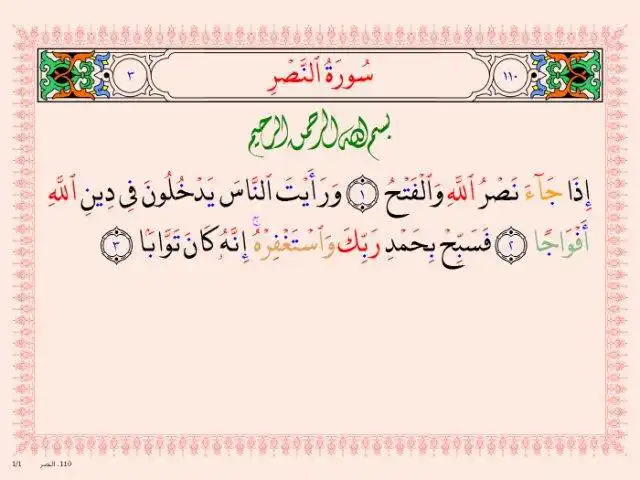 ١١٠ سُورَةُ ٱلنَّصْرِ ٣
بسم الله الرحمن الرحيم
إِذَا جَآءَ نَصْرُ ٱللَّهِ وَٱلْفَتْحُ ١ وَرَأَيْتَ ٱلنَّاسَ يَدْخُلُونَ فِى دِينِ ٱللَّهِ
أَفْوَاجًا ٢ فَسَبِّحْ بِحَمْدِ رَبِّكَ وَٱسْتَغْفِرْهُ ۚ إِنَّهُۥ كَانَ تَوَّابًۢا ٣
1/1 110. النصر